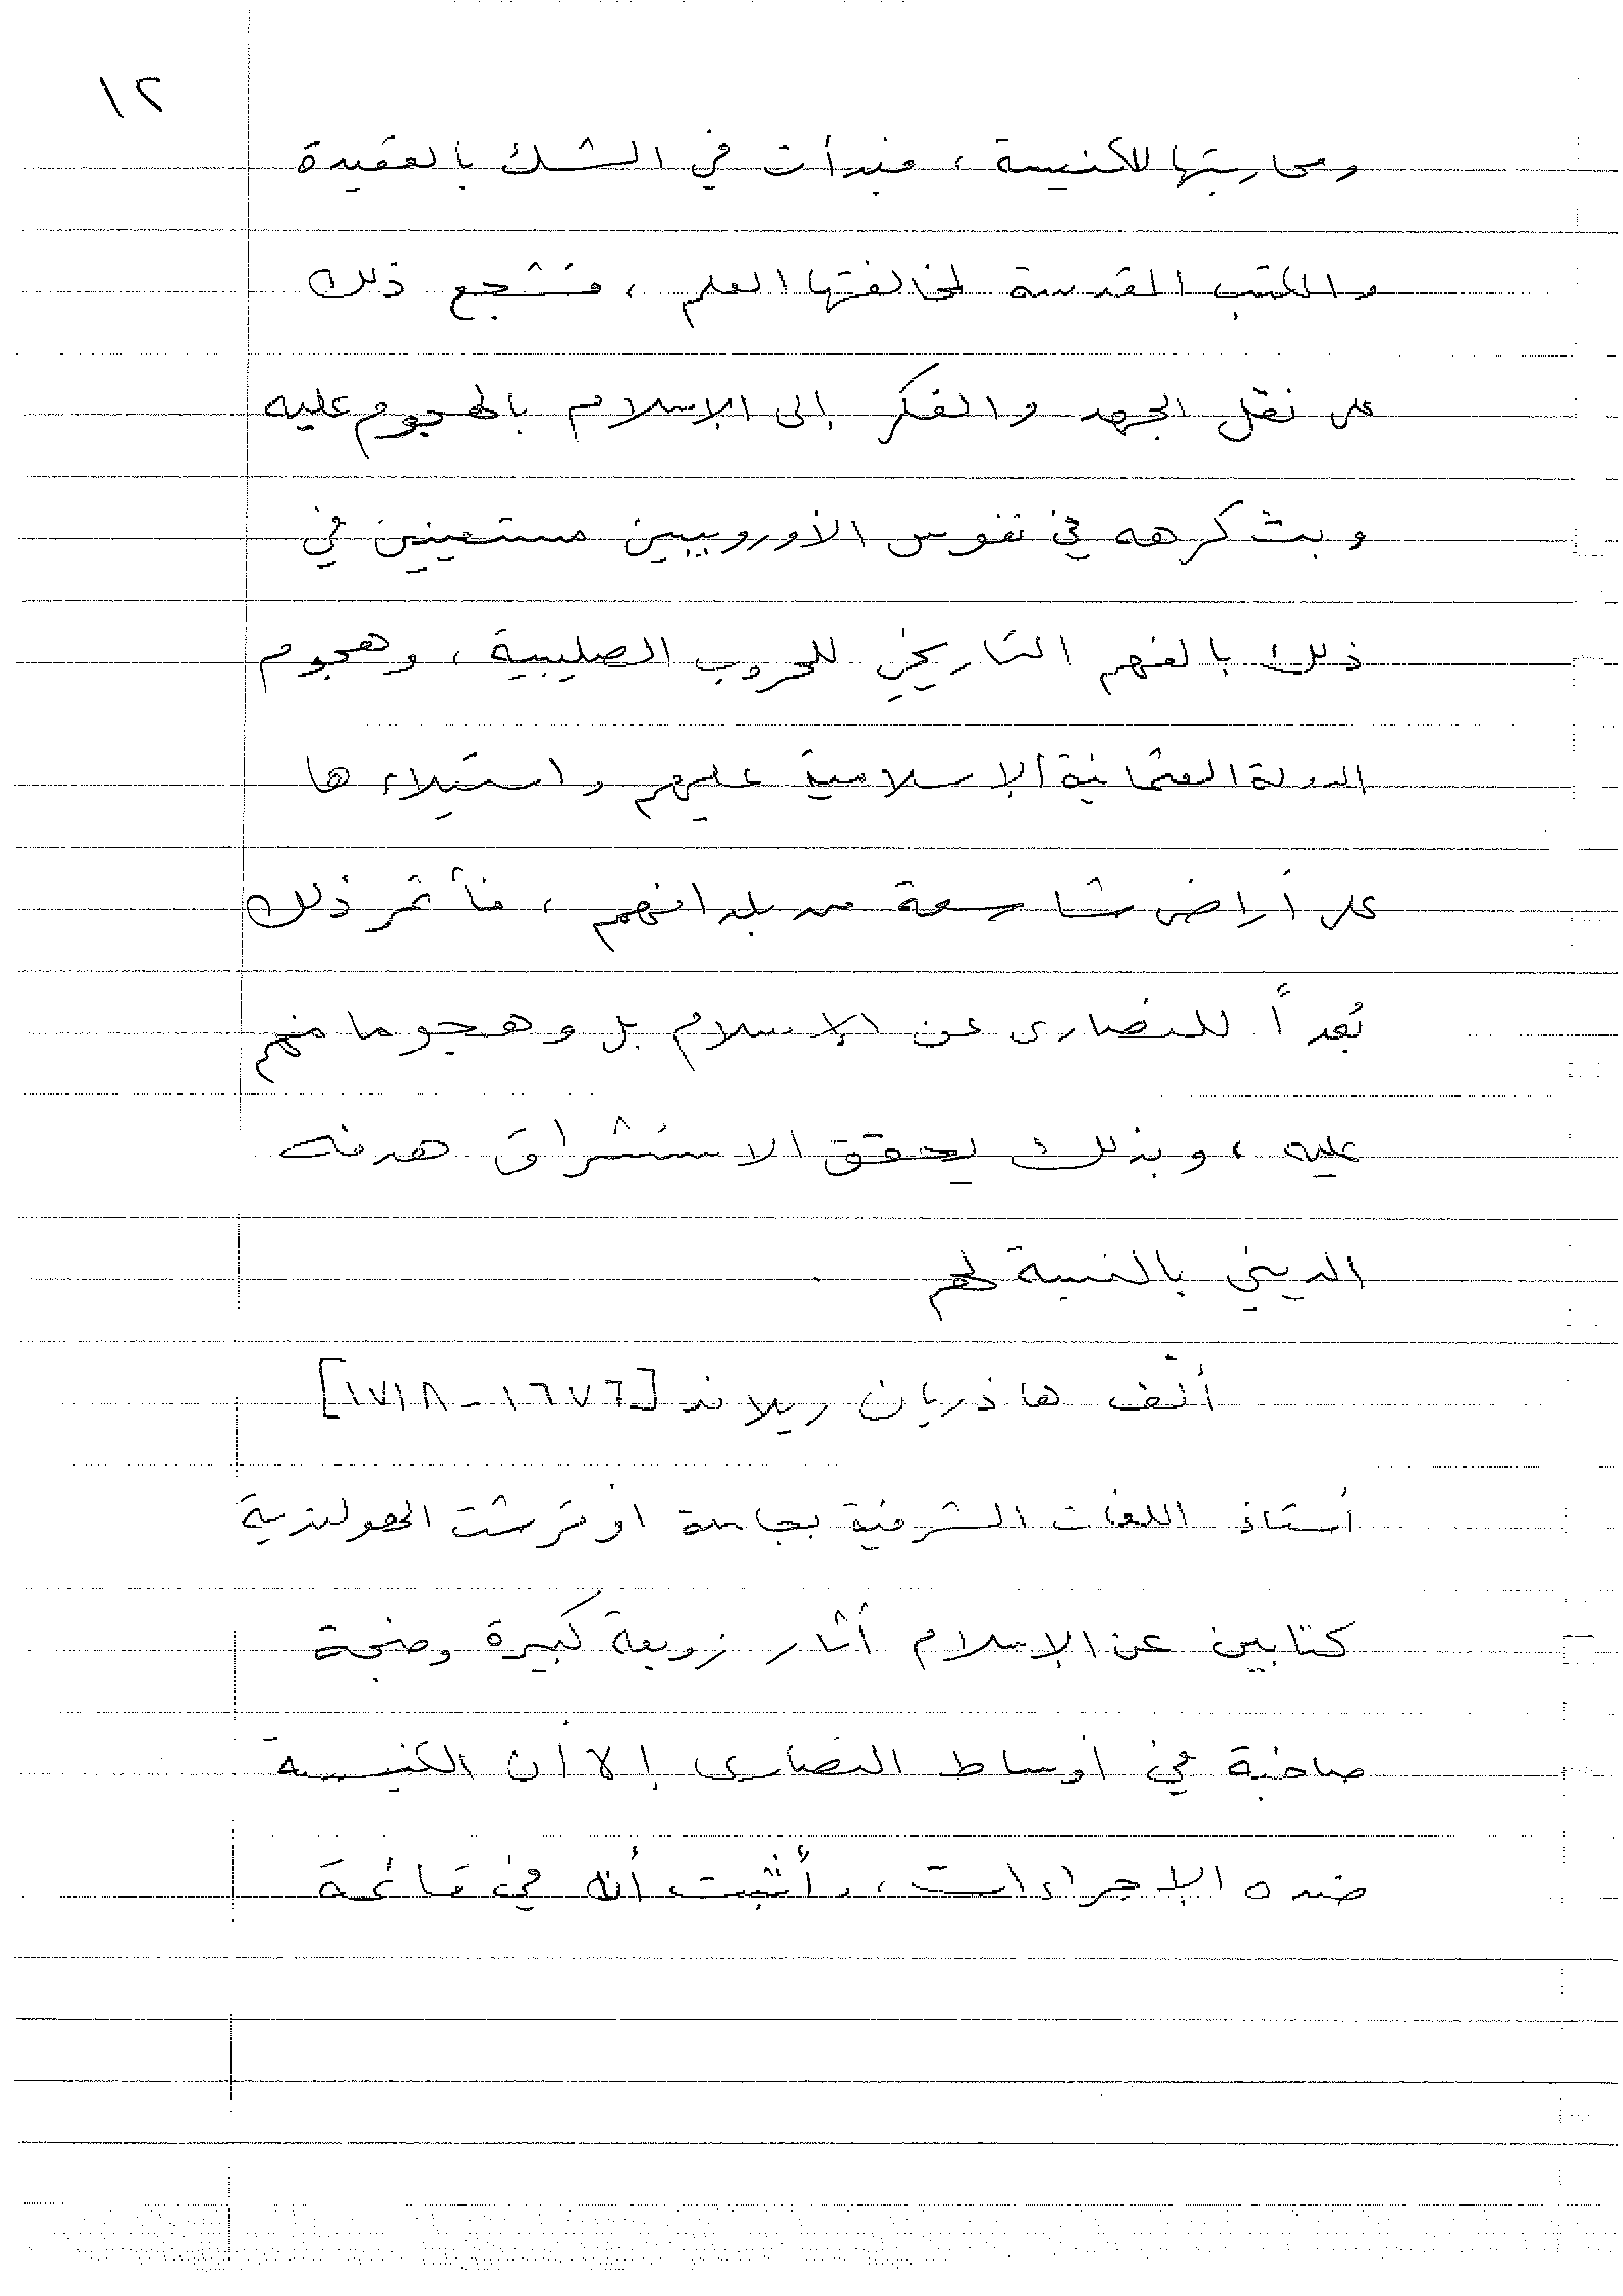 ١٢
ومحاربتها للكنيسة ، فبدأت في الشك بالعقيدة
والكتب المقدسة لمخالفتها العلم ، فشجع ذلك
على نقل الجهد والفكر إلى الإسلام بالهجوم عليه
وبث كرهه في نفوس الأوروبيين مستعينين في
ذلك بالفهم التاريخي للحروب الصليبية ، وهجوم
الدولة العثمانية الإسلامية عليهم واستيلاءها
على أراض شاسعة من بلدانهم ، فأثمر ذلك
بُعداً للنصارى عن الإسلام بل وهجوما منهم
عليه ، وبذلك يحقق الاستشراق هدفه
الديني بالنسبة لهم .
ألّف هاذريان ريلاند [١٦٧٦ - ١٧١٨]
أستاذ اللغات الشرقية بجامعة أوترشت الهولندية
كتابين عن الإسلام أثار زوبعة كبيرة وضجة
صاخبة في أوساط النصارى إلا أن الكنيسة
ضده الإجراءات ، وأثبت أنه في قائمة